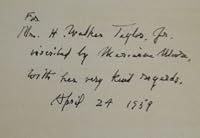 For
Mrs. H. Walker Taylor, Jr.
inscribed by Marianne Moore,
with her very kind regards.
April 24 1959